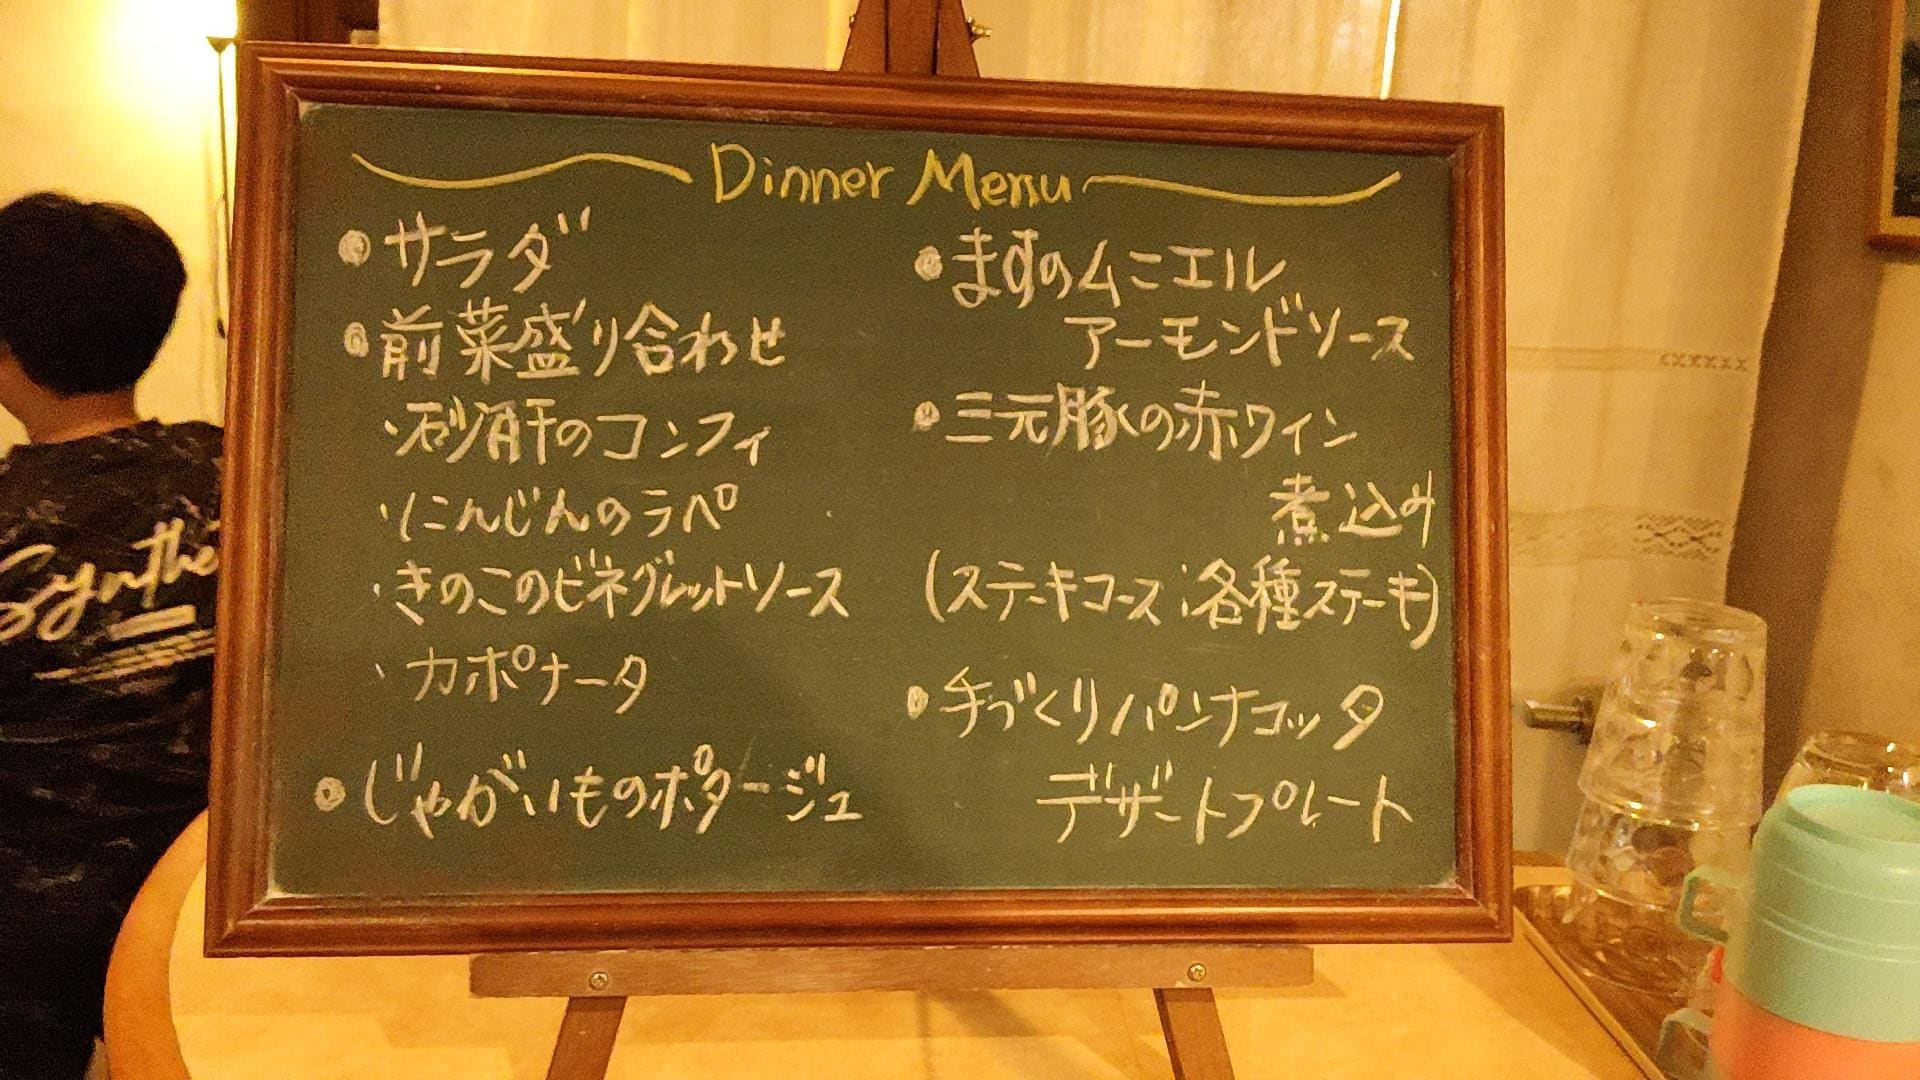 Dinner Menu
・サラダ
・前菜盛り合わせ
・砂肝のコンフィ
・にんじんのラペ
・きのこのビネグレットソース
・カポナータ
・じゃがいものポタージュ
・ますのムニエル
アーモンドソース
・三元豚の赤ワイン
煮込み
(ステーキコース:各種ステーキ)
・手づくりパンナコッタ
デザートプレート
Synthe